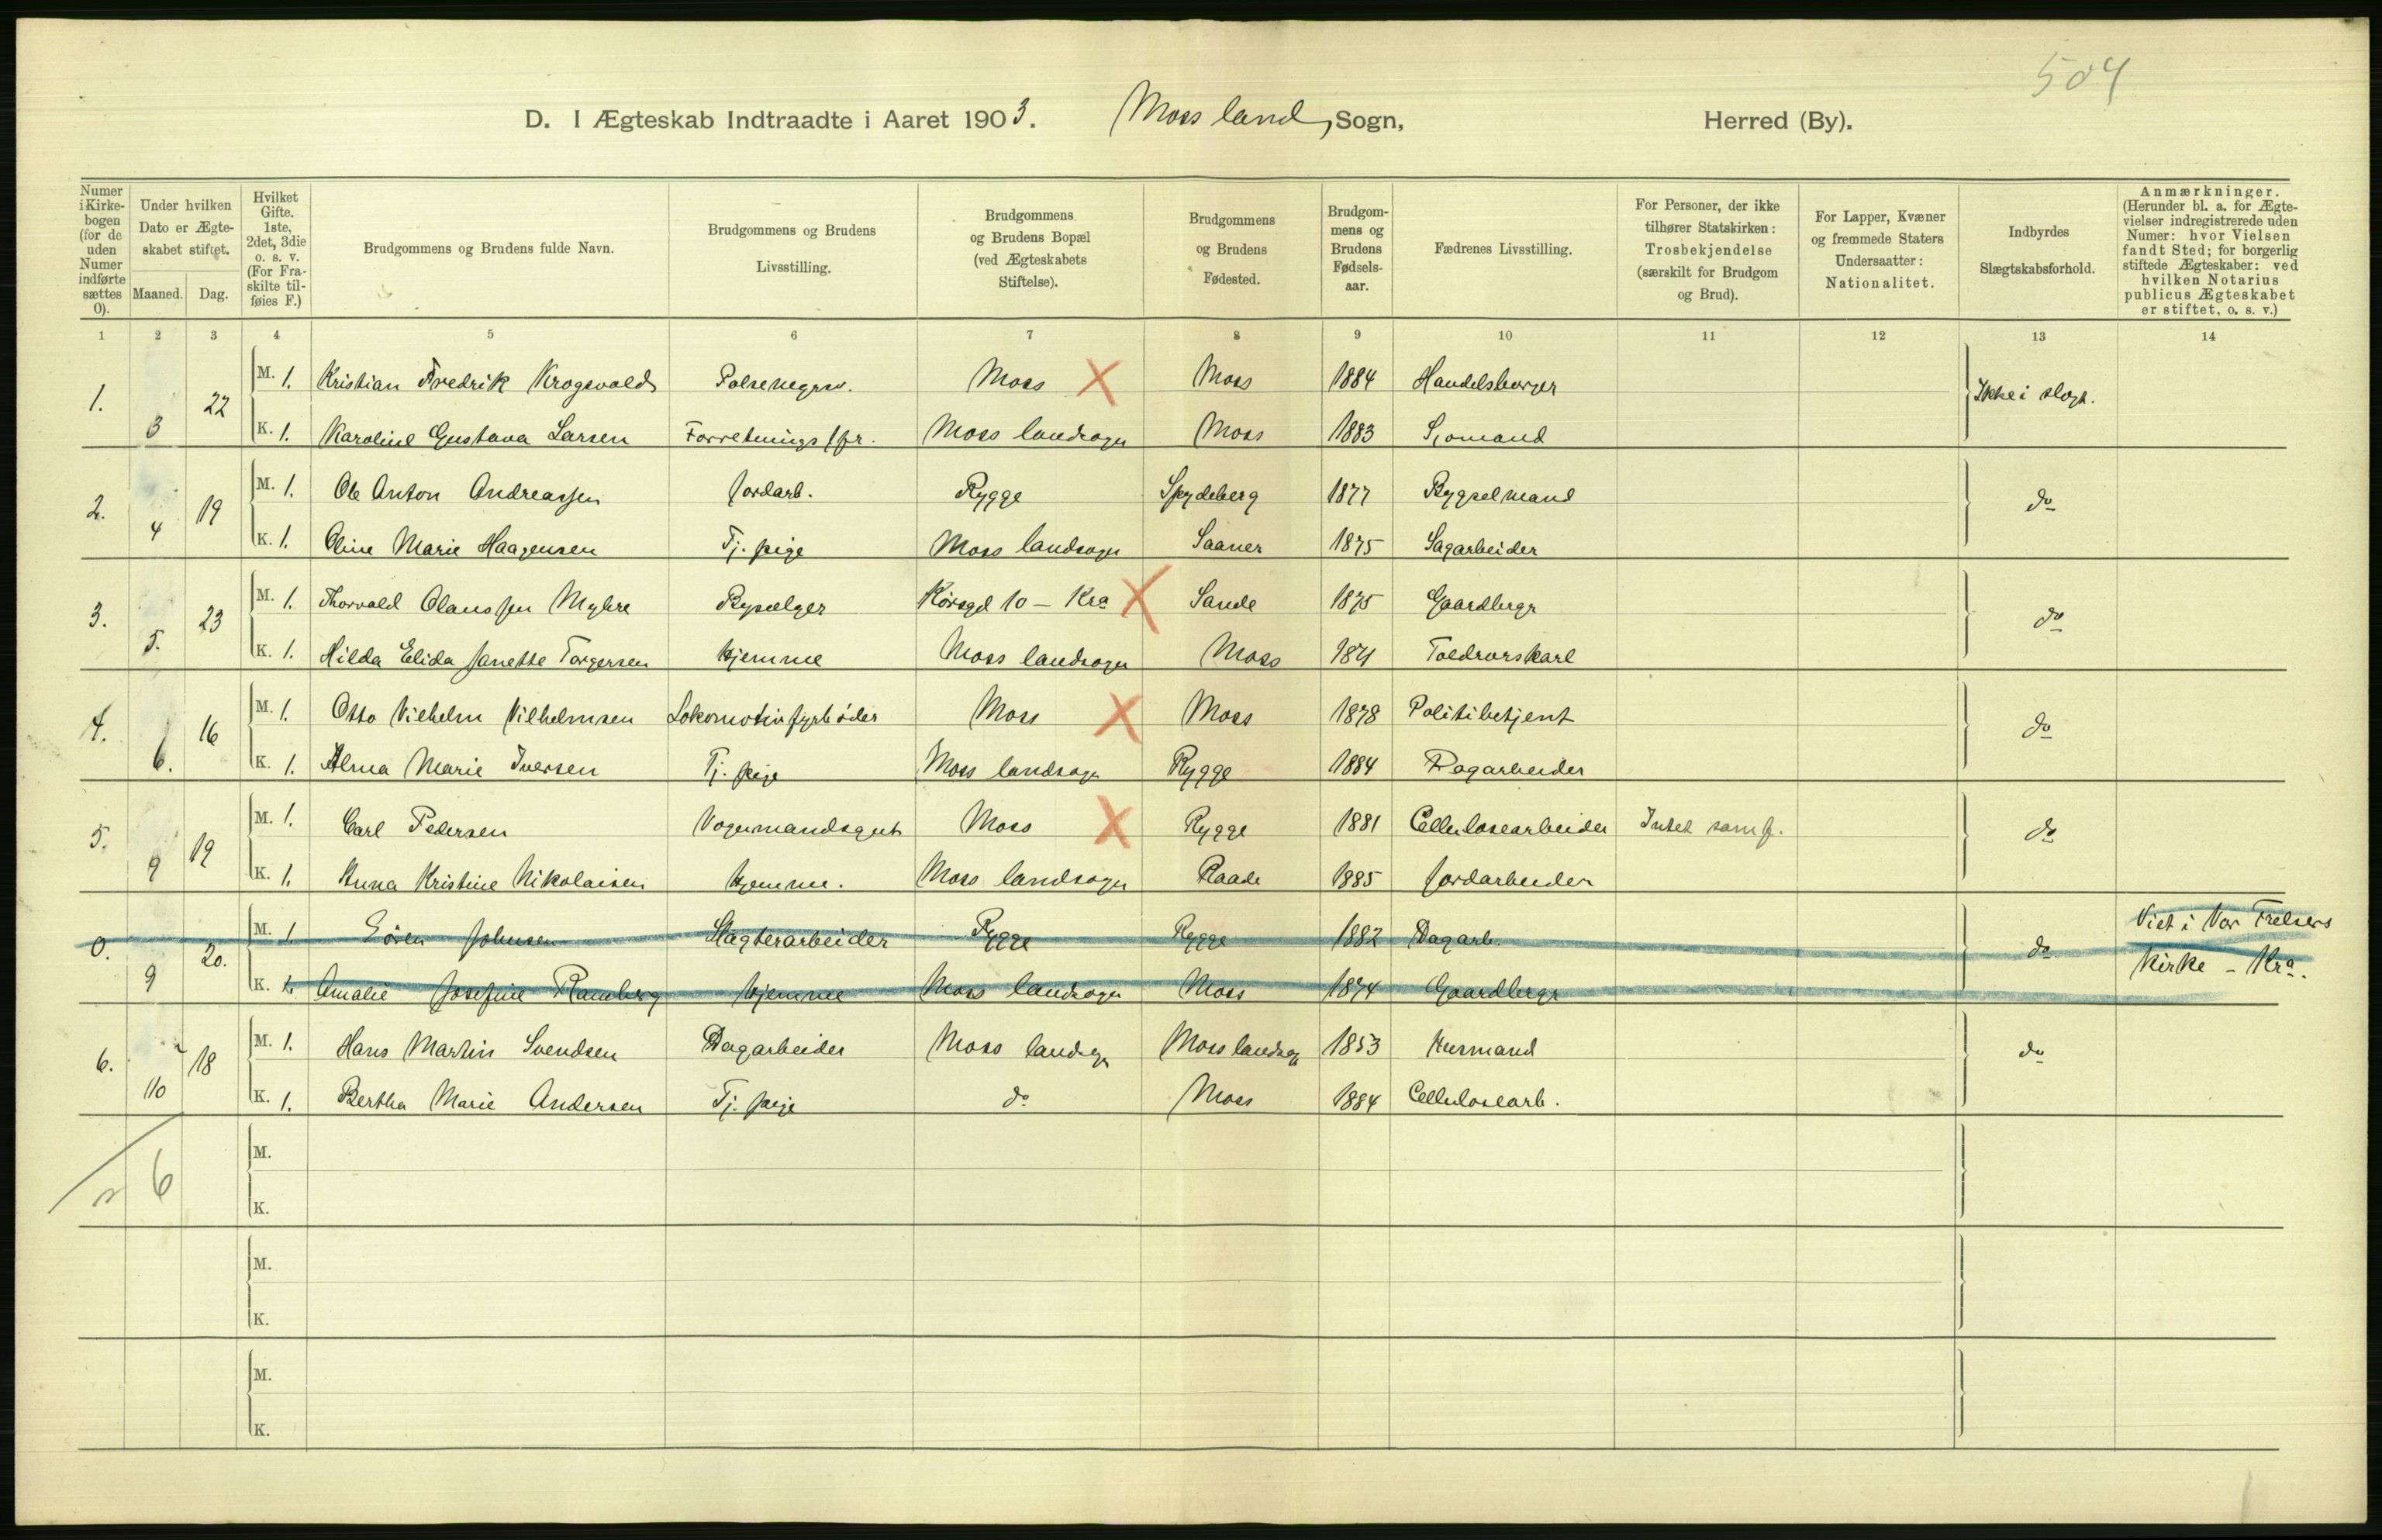 504
D. I Ægteskab Indtraadte i Aaret 1903. Moss land Sogn, Herred (By).
Numer i Kirkebogen (for de uden Numer indførte sættes 0).
Under hvilken Dato er Ægteskabet stiftet.
Maaned. Dag.
Hvilket Gifte. 1ste, 2det, 3die o. s. v. (For Fraskilte tilføies F.)
Brudgommens og Brudens fulde Navn.
Brudgommens og Brudens Livsstilling.
Brudgommens og Brudens Bopæl (ved Ægteskabets Stiftelse).
Brudgommens og Brudens Fødested.
Brudgommens og Brudens Fødselsaar.
Fædrenes Livsstilling.
For Personer, der ikke tilhører Statskirken: Trosbekjendelse (særskilt for Brudgom og Brud).
For Lapper, Kvæner og fremmede Staters Undersaatter: Nationalitet.
Indbyrdes Slægtskabsforhold.
Anmærkninger. (Herunder bl. a. for Ægtevielser indregistrerede uden Numer: hvor Vielsen fandt Sted; for borgerlig stiftede Ægteskaber: ved hvilken Notarius publicus Ægteskabet er stiftet, o. s. v.)
1 2 3 4 5 6 7 8 9 10 11 12 13 14
1. 3 22 M. 1. Kristian Fredrik Krogsvold Moss Moss 1884 Handelsborger Ikke i slægt.
K. 1. Karoline Gustava Larsen Forretningsfør. Moss landsogn Moss 1883 Sjømand
2. 4 19 M. 1. Ole Anton Andreassen Jordarb. Rygge Spydeberg 1877 Bygselmand do
K. 1. Oline Marie Haagensen Tj. pige Moss landsogn Saaner 1875 Sagarbeider
3. 5. 23 M. 1. Thorvald Olaussen Myhre Bysælger 10 - Kra Sande 1875 Gaardbrgr do
K. 1. Hilda Elida Janette Torgersen Hjemme Moss landsogn Moss 1871 Toldrorskarl
4. 6. 16 M. 1. Otto Vilhelm Vilhelmsen Lokomotivfyrbøder Moss Moss 1878 Politibetjent do
K. 1. Alma Marie Iversen Tj. pige Moss landsogn Rygge 1884 Dagarbeider
5. 9 19 M. 1. Carl Pedersen Vognmandsgut Moss Rygge 1881 Cellulosearbeider Intet samf. do
K. 1. Anna Kristine Nikolaisen Hjemme. Moss landsogn Raade 1885 Jordarbeider
0. 9 20. M. 1. Sören Johnsen Slagterarbeider Rygge Rygge 1882 Dagarb. do Viet i Vor Frelsers
K. 1. Amalie Josefine Ramberg Hjemme Moss landsogn Moss 1874 Gaardbrgr Kirke - Kra.
6. 10 18 M. 1. Hans Martin Svendsen Dagarbeider Moss landsogn Moss landsogn 1853 Husmand do
K. 1. Bertha Marie Andersen Tj. pige do Moss 1884 Cellulosearb.
6 M.
K.
M.
K.
M.
K.